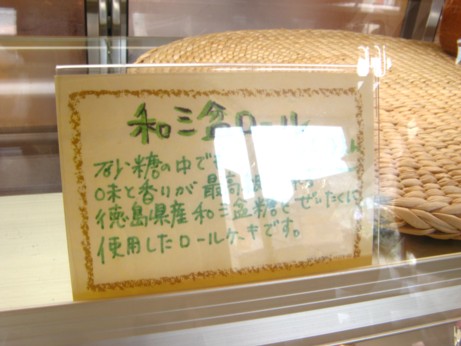 和三盆ロール
砂糖の中で
味と香りが最高
徳島県産和三盆糖をぜいたくに
使用したロールケーキです。